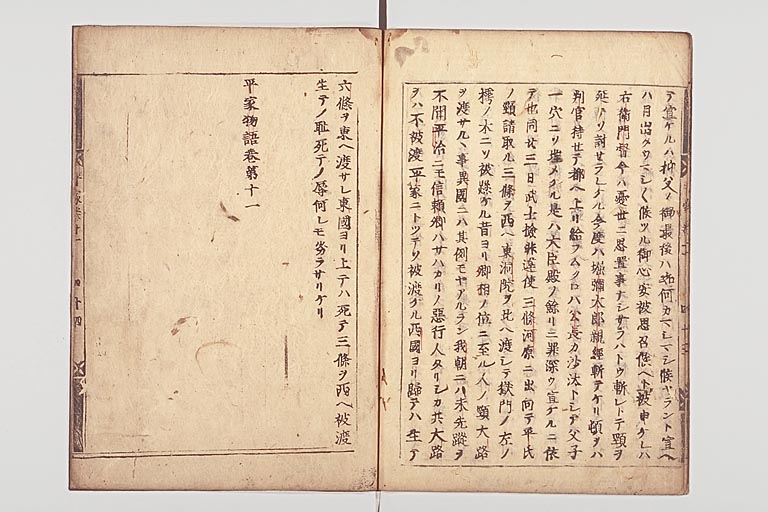 テ宣ケルハ抑父ノ御最後ハ如何カマシマシ候ヤラント宣ヘ
ハ目出タウマシ〱候ツル御心安被思召候ヘト被申ケレハ
右衛門督今ハ憂世ニ思置事ナシサラハトウ斬レトテ頸ヲ
延テソ討セラレケル今度ハ堀彌太郎親經斬テケリ頸ヲハ
判官持セテ都ヘ上リ給フムクロハ公長カ沙汰トシテ父子
一穴ニソ埋メケル是ハ大臣殿ノ餘リニ罪深ウ宣ケルニ依
テ也同廿三日武士撿非違使三條河原ニ出向テ平氏
ノ頸請取ル三條ヲ西ヘ東洞院ヲ北ヘ渡シテ獄門ノ左ノ
樗ノ木ニソ被懸ケル昔ヨリ卿相ノ位ニ至ル人ノ頸大路
ヲ渡サルヽ事異國ニハ其例モヤアルラン我朝ニハ未先蹤ヲ
不聞平治ニモ信頼卿ハサハカリノ惡行人タリシカ共大路
ヲハ不被渡平家ニトツテソ被渡ケル西國ヨリ歸テハ生テ
六條ヲ東ヘ渡サレ東國ヨリ上テハ死テ三條ヲ西ヘ被渡
生テノ耻死テノ辱何レモ劣ラサリケリ
平家物語卷第十一
平家卷十一
四十四